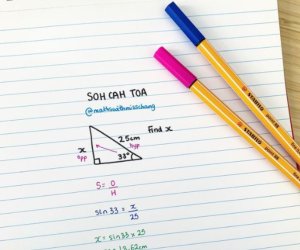 SOH CAH TOA
@mathswithmisschang
Find x
25cm
hyp
x
opp
33°
S = O
H
sin 33 = x
25
x = sin 33 x 25
13.62cm
STABILO
STABILO